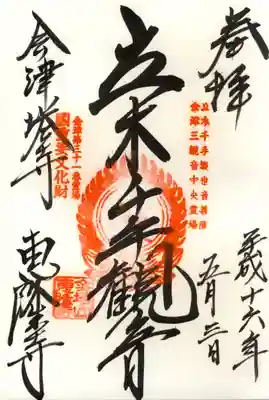 奉拝
平成十六年
五月三日
立木千手観世音菩薩
会津三観音中央霊場
立木千手観音
会津第三十一番霊場
国重要文化財
会津塔寺
恵隆寺